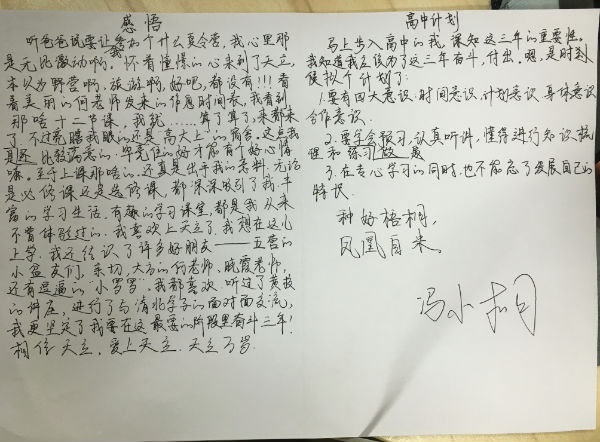 感悟
听爸爸说要让我参加个什么夏令营,我心里那
是无比激动啊。怀着憧憬的心来到了天立,
本以为野营啊,旅游啊,好吧,都没有!!!看
着美丽的何老师发来的作息时间表,我看到
那啥十二节课,我就……算了算了,来都来
了,不过亮瞎我眼的还是"高大上"的宿舍。这点我
是还比较满意的,毕竟住的好才能有个好心情
嘛。至于上课那啥的,还真是出乎我的意料。无论
是必修课还是选修课,都深深吸引了我,丰
富的学习生活,有趣的学习课堂,都是我从来
不曾体验过的。我喜欢上天立了,我想在这儿
上学。我还结识了许多好朋友——五营的
小盆友们,亲切、大方的何老师、晓霞老师,
还有逗逼的"小罗罗",我都喜欢。听过了黄教
的讲座,进行了与清北学子的面对面交流,
我更坚定了我要在这最要的阶段里奋斗三年!
相信天立,爱上天立,天立万岁
高中计划
马上步入高中的我,深知这三年的重要性。
我知道我应该为了这三年奋斗,付出。嗯,是时刻
侵拟个计划了:
1.要有四大意识:时间意识、计划意识、身体意识
合作意识。
2.要学会预习,认真听讲,懂得进行知识梳
理和练习
3.在专心学习的同时,也不能忘了发展自己的
特长。
种好梧桐,
凤凰自来。
冯小桐